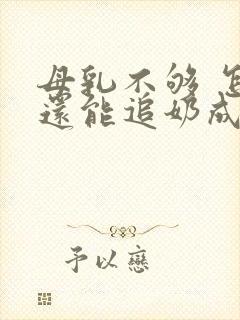 母乳不够 怎
还能追奶成
予以恋